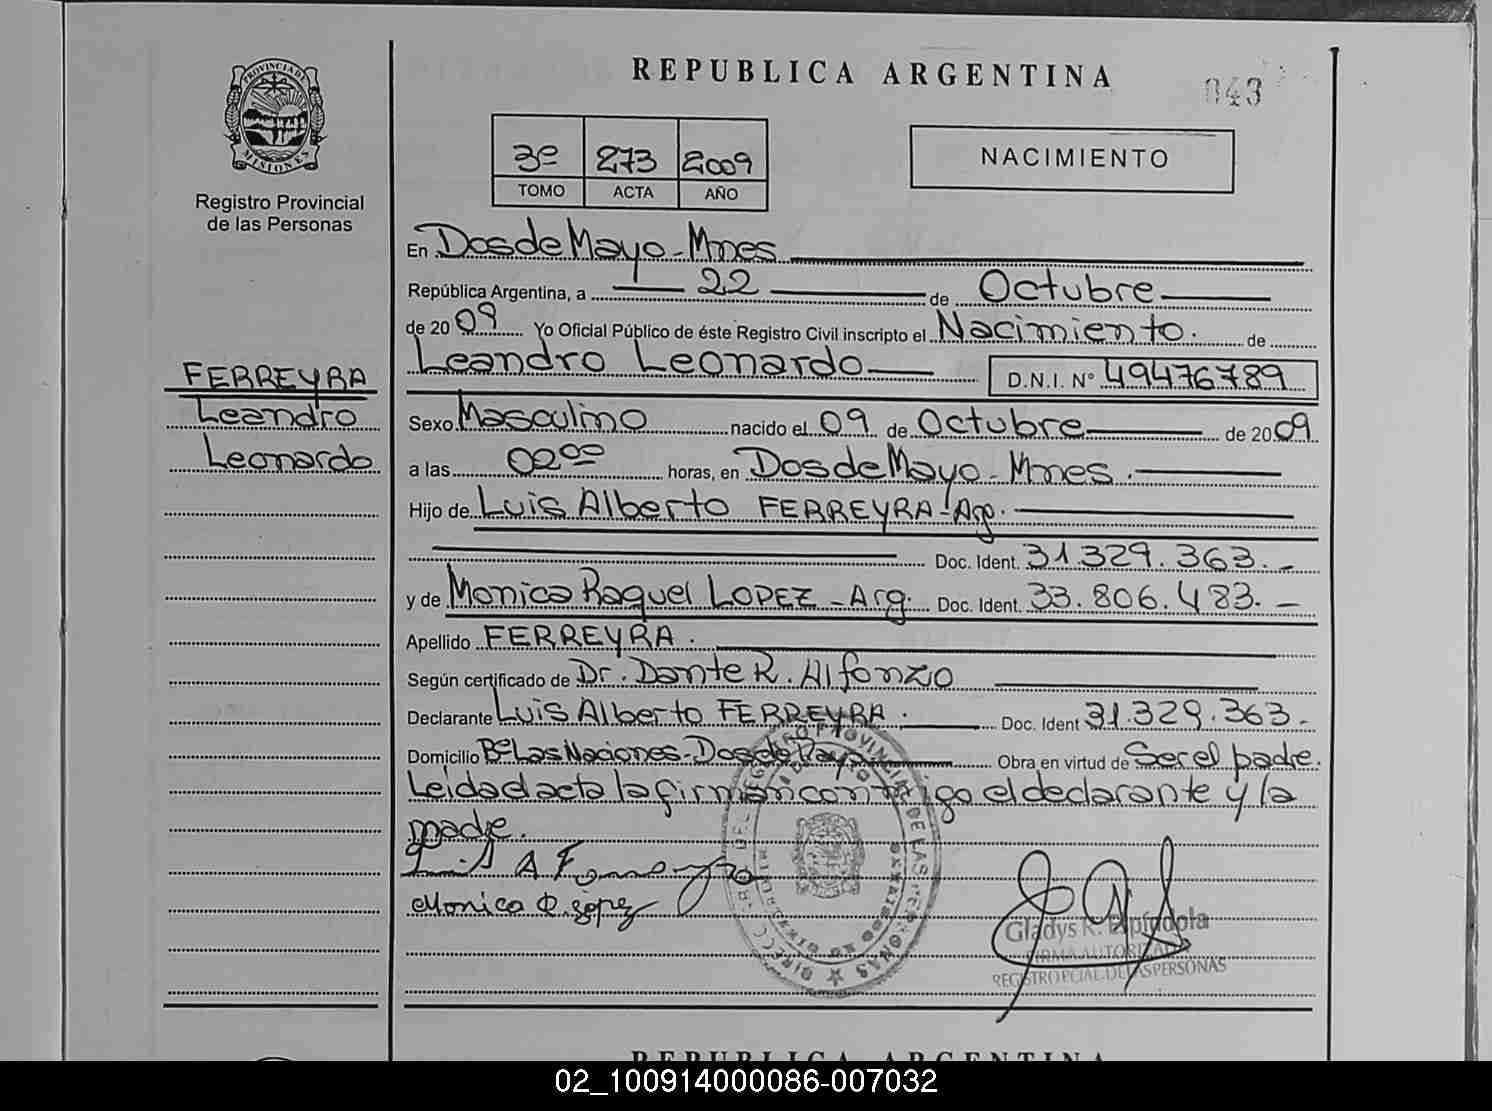 REPUBLICA ARGENTINA
043
PROVINCIA DE MISIONES
Registro Provincial
de las Personas
3º 273 2009
TOMO ACTA AÑO
NACIMIENTO
En Dos de Mayo - Mnes
República Argentina, a 22 de Octubre
de 2009 Yo Oficial Público de éste Registro Civil inscripto el Nacimiento. de
Leandro Leonardo D.N.I. Nº 49476789
FERREYRA
Leandro
Leonardo
Sexo Masculino nacido el 09 de Octubre de 2009
a las 02ºº horas, en Dos de Mayo - Mnes.
Hijo de Luis Alberto FERREYRA - Arg.
Doc. Ident. 31.329.363. -
y de Monica Raquel LOPEZ - Arg. Doc. Ident. 33.806.483. -
Apellido FERREYRA.
Según certificado de Dr. Dante R. Alfonzo
Declarante Luis Alberto FERREYRA. Doc. Ident 31.329.363. -
Domicilio Bº Las Naciones - Dos de Mayo Obra en virtud de Ser el padre.
Leida el acta la firman conmigo el declarante y la
madre.
Luis A Ferreyra
Monica R. López
Gladys R. Espíndola
FIRMA AUTORIZADA
REGISTRO PCIAL. DE LAS PERSONAS
REPUBLICA ARGENTINA
02_100914000086-007032